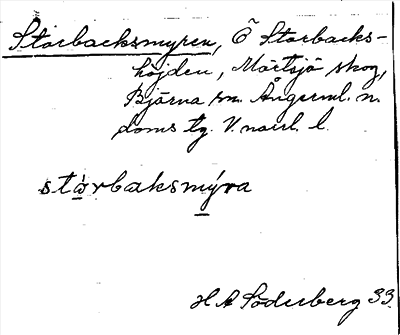 Storbacksmyren, Ö Storbacks-
höjden, Mörtsjö skog,
Björna sn. Ångerml. n.
doms tg. V. nairl. l.
stòrbaksmýra
H A Söderberg 33.